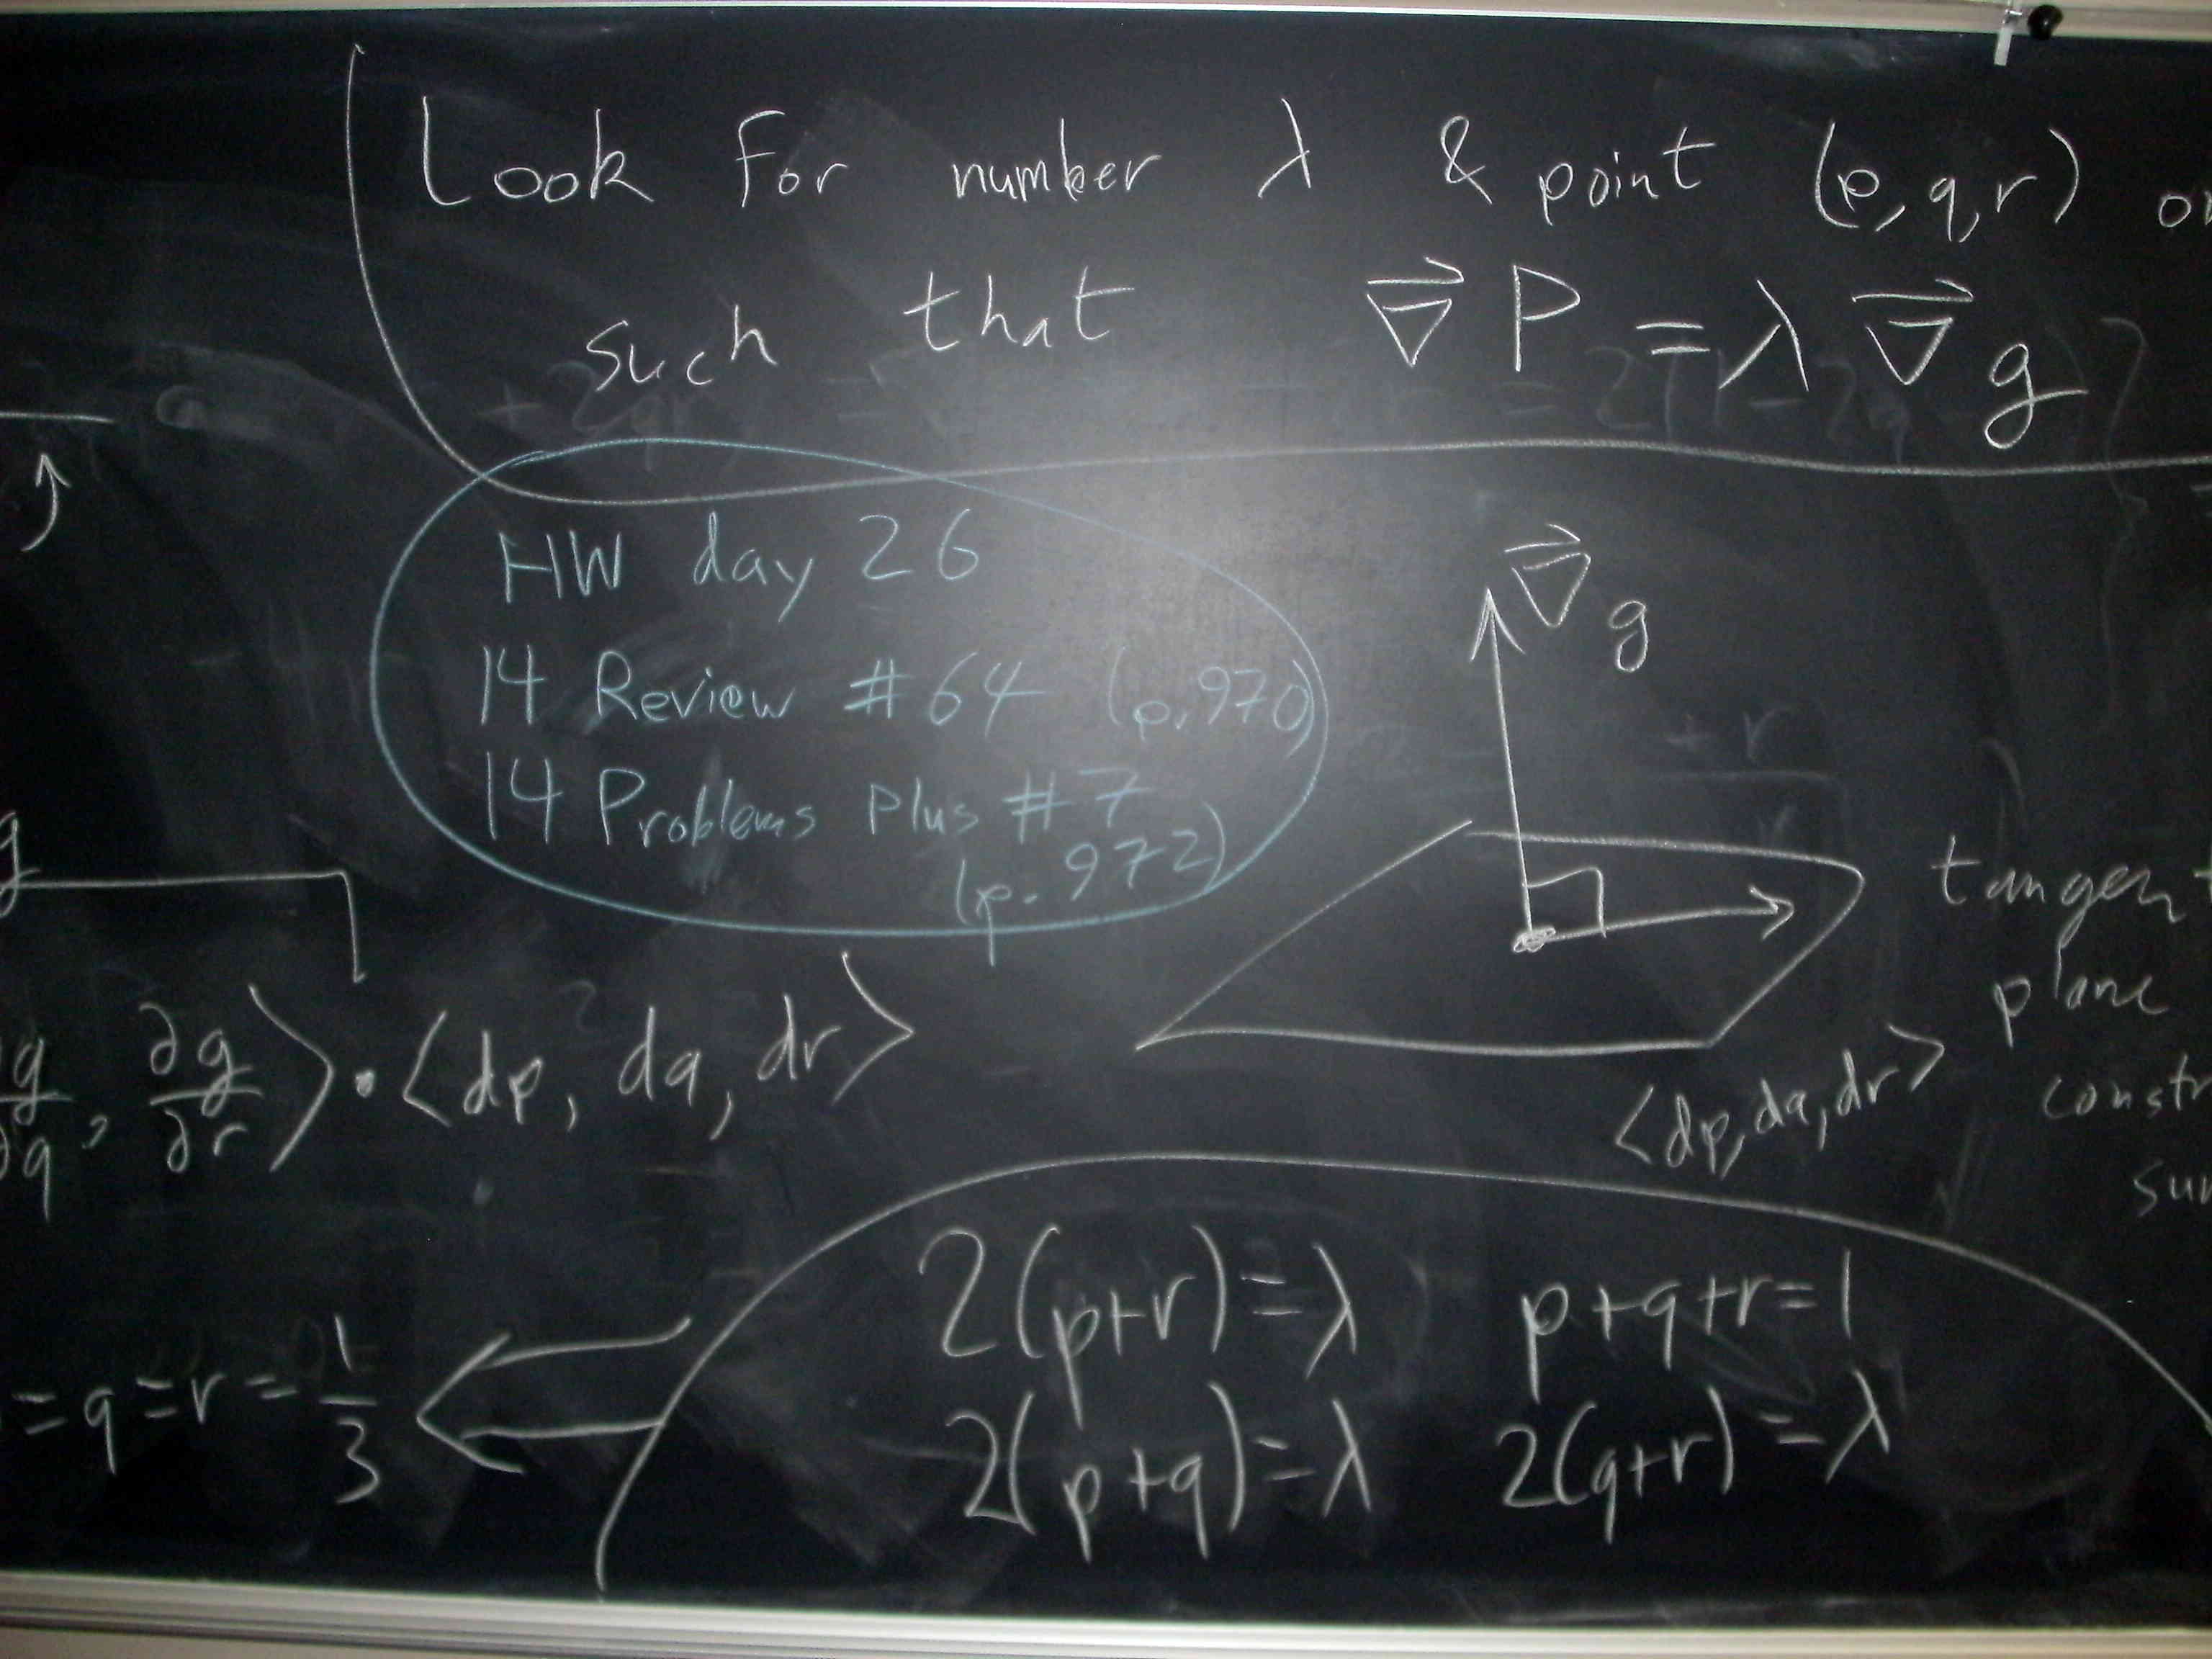 Look for number λ & point (p, q, r)
such that ∇⃗ P = λ ∇⃗ g
HW day 26
14 Review #64 (p. 970)
14 Problems Plus #7
(p. 972)
∇⃗ g
tangent
plane
⟨dp, dq, dr⟩
g
∂g/∂q, ∂g/∂r⟩ · ⟨dp, dq, dr⟩
2(p+r)=λ p+q+r=1
2(p+q)=λ 2(q+r)=λ
=q=r=1/3